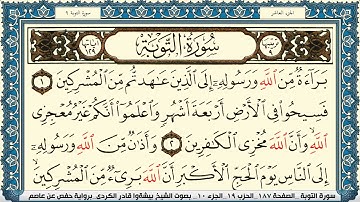 الجزء العاشر
سورة التوبة ٩
سُورَةُ التَّوْبَةِ
آياتها ١٢٩
بَرَآءَةٌ مِّنَ ٱللَّهِ وَرَسُولِهِۦٓ إِلَى ٱلَّذِينَ عَٰهَدتُّم مِّنَ ٱلْمُشْرِكِينَ ١
فَسِيحُوا۟ فِى ٱلْأَرْضِ أَرْبَعَةَ أَشْهُرٍ وَٱعْلَمُوٓا۟ أَنَّكُمْ غَيْرُ مُعْجِزِى
ٱللَّهِ وَأَنَّ ٱللَّهَ مُخْزِى ٱلْكَٰفِرِينَ ٢ وَأَذَٰنٌ مِّنَ ٱللَّهِ وَرَسُولِهِۦٓ
إِلَى ٱلنَّاسِ يَوْمَ ٱلْحَجِّ ٱلْأَكْبَرِ أَنَّ ٱللَّهَ بَرِىٓءٌ مِّنَ ٱلْمُشْرِكِينَ
سورة التوبة الصفحة ١٨٧ الحزب ١٩ الجزء ١٠ بصوت الشيخ بيشةوا قادر الكردي برواية حفص عن عاصم